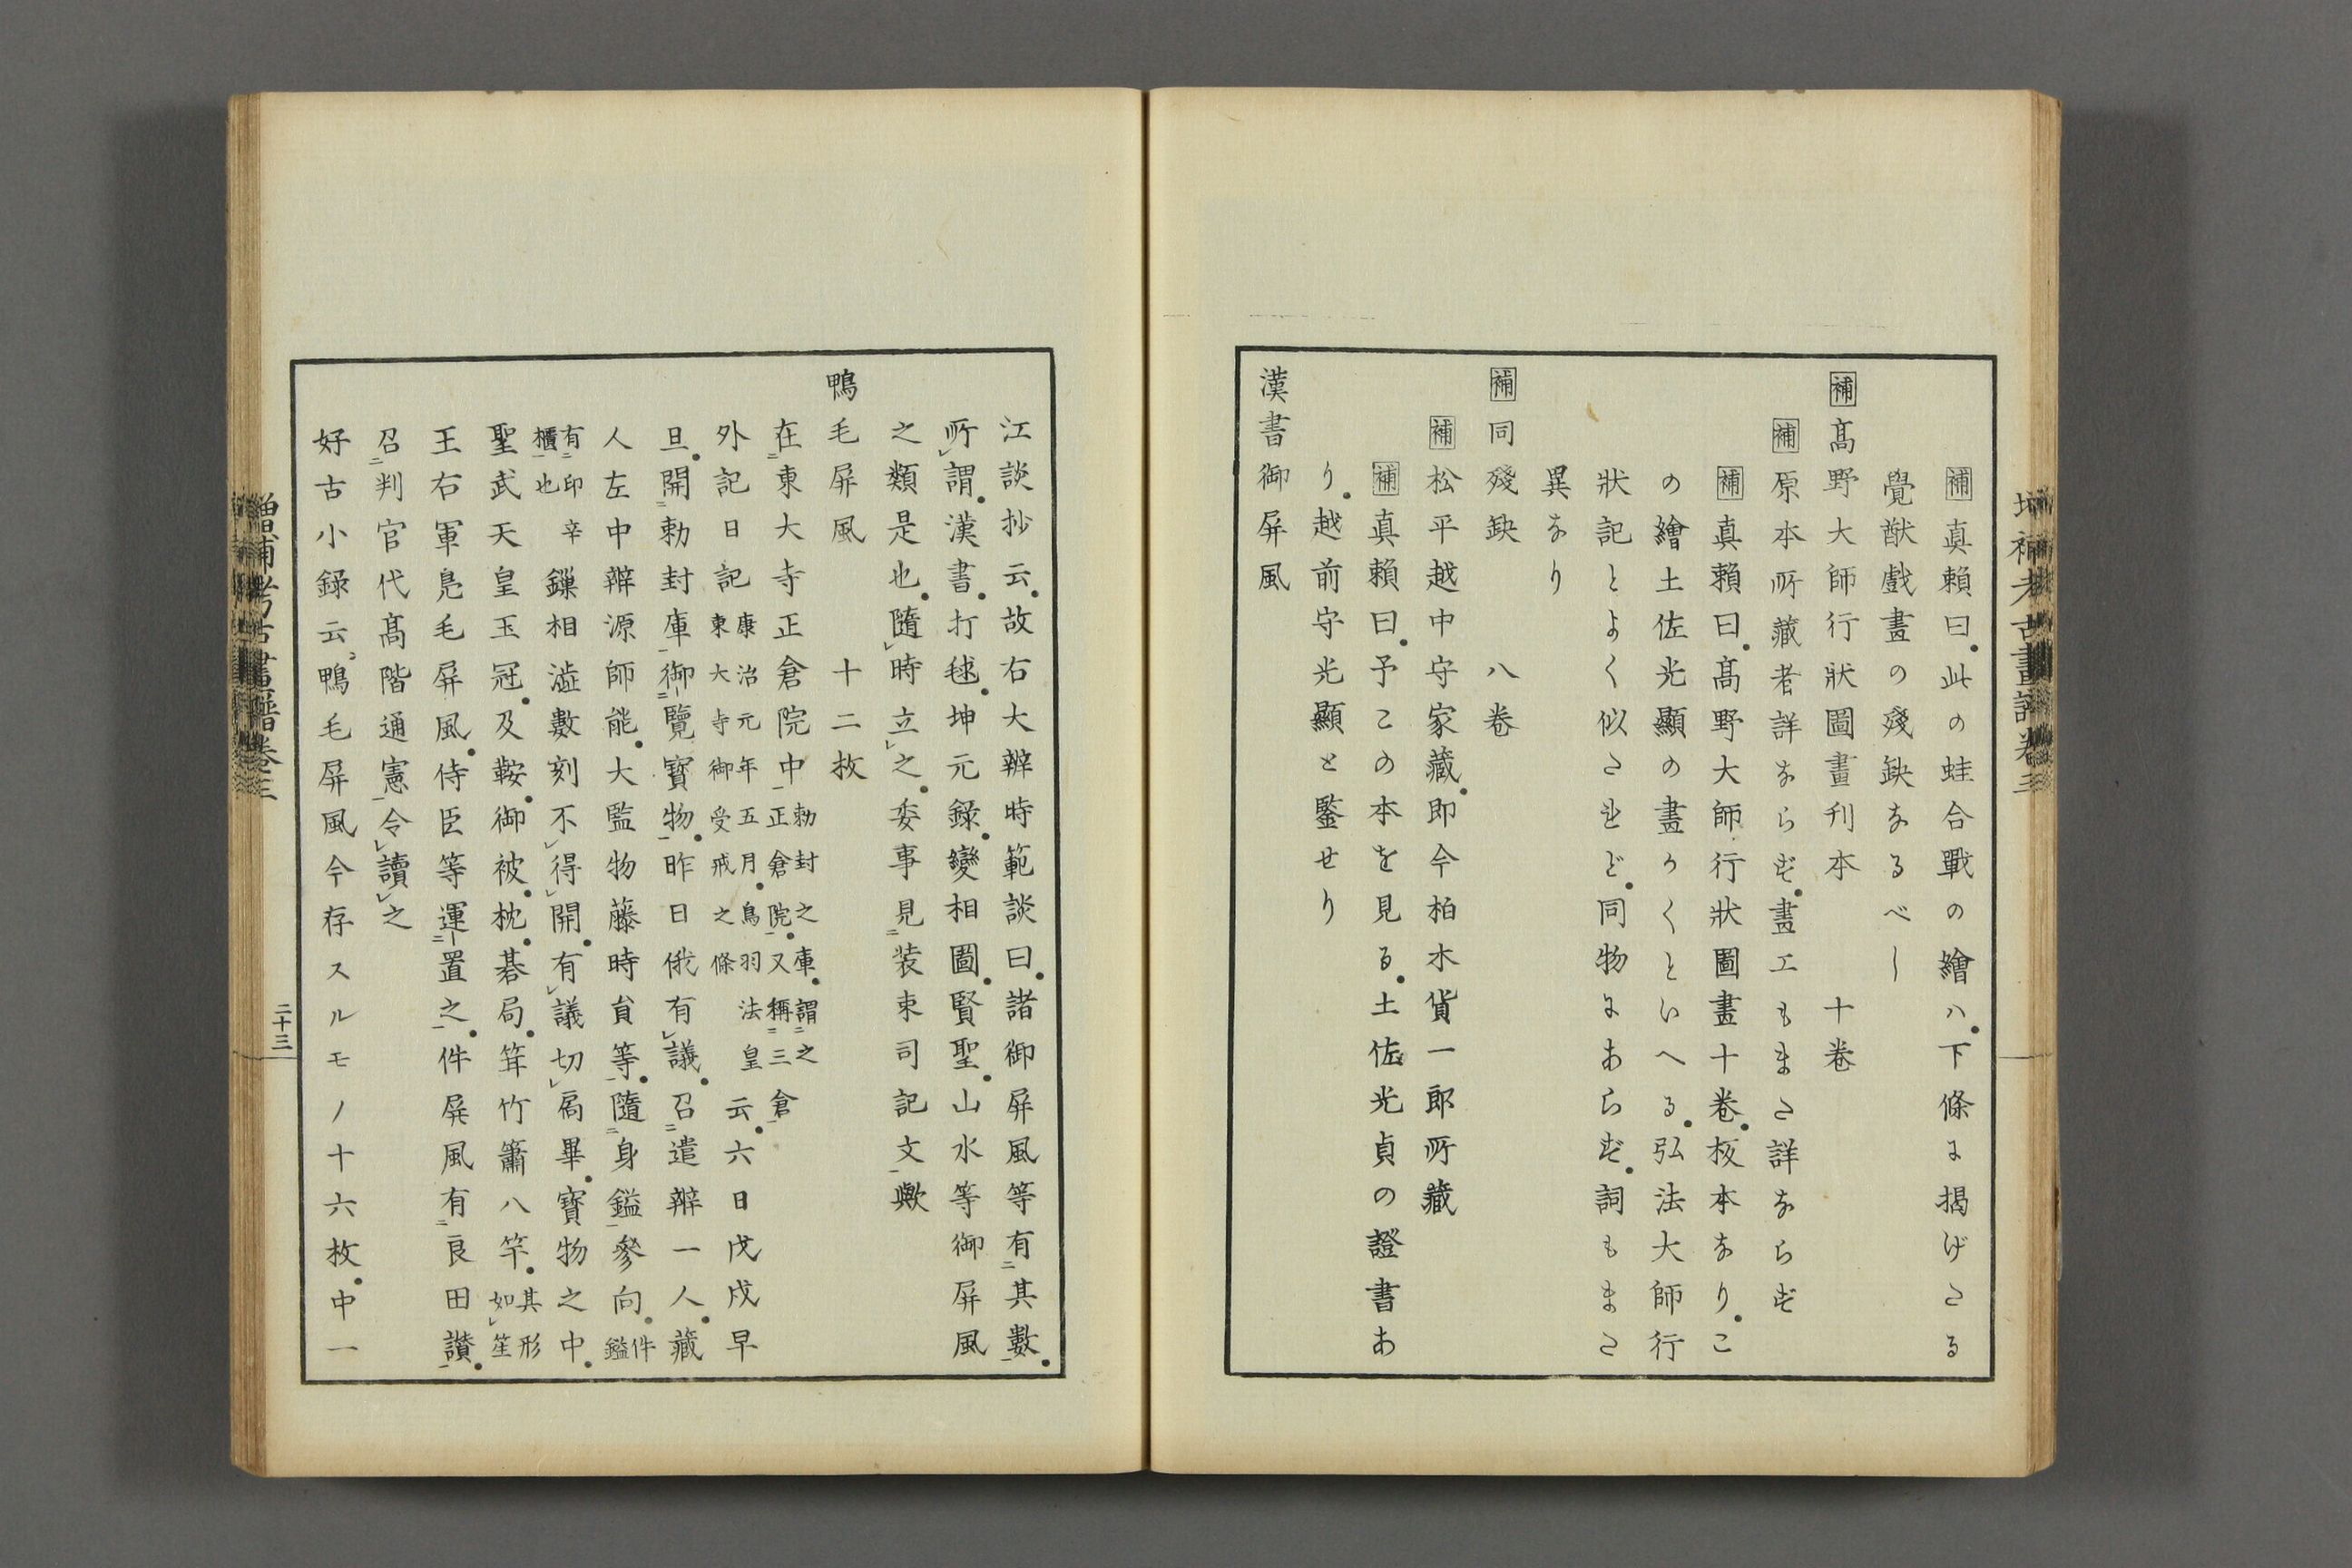 補真賴曰此の蛙合戰の繪ハ下條に揭げたる
覺猷戲畫の殘缺なるべし
補高野大師行狀圖畫刋本　十卷
補原本所藏者詳ならず畫工もまた詳ならず
補真賴曰高野大師行狀圖畫十卷板本なりこ
の繪土佐光顯の畫かくといへる弘法大師行
狀記とよく似たれど同物にあらず詞もまた
異なり
補同殘缺　八卷
補松平越中守家藏即今柏木貨一郎所藏
補真賴曰予この本を見る土佐光貞の證書あ
り越前守光顯と鑒せり
漢書御屏風
江談抄云故右大辨時範談曰諸御屏風等有二其數一
所レ謂漢書打毬坤元錄變相圖賢聖山水等御屏風
之類是也隨レ時立レ之委事見二装束司記文一歟
鴨毛屏風　十二枚
在二東大寺正倉院中一勅封之庫謂二之正倉院一又稱二三倉一
外記日記康治元年五月鳥羽法皇東大寺御受戒之條云六日戊戌早
旦開二勅封庫一御二覽寶物一昨日俄有レ議召二遣辨一人藏
人左中辨源師能大監物藤時貟等一隨二身鎰一參向件鎰
有二印櫃一也辛鏁相澁數刻不レ得レ開有レ議切レ扄畢寶物之中
聖武天皇玉冠及鞍御被枕碁局䇯竹簫八竿其形如レ笙
王右軍鳬毛屏風侍臣等運二置之一件屏風有二良田讃一
召二判官代髙階通憲一令レ讀レ之
好古小録云鴨毛屏風今存スルモノ十六枚中一
二十三